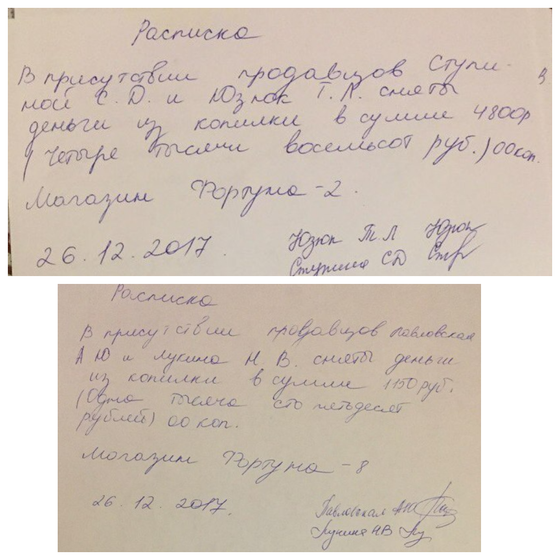 Расписка
В присутствии продавцов Ступи-
ной С.D. и Юзюк Т.Л. сняты
деньги из копилки в сумме 4800р
(Четыре тысячи восемьсот руб.) 00 коп.
Магазин Фортуна-2.
26.12.2017.
Юзюк Т Л Юзюк
Ступина СD
Расписка
В присутствии продавцов Павловская
А Ю и Лукина Н В. сняты деньги
из копилки в сумме 1150 руб.
(Одна тысяча сто петьдесят
рублей) 00 коп.
Магазин Фортуна-8
26.12.2017.
Павловская АЮ
Лукина НВ